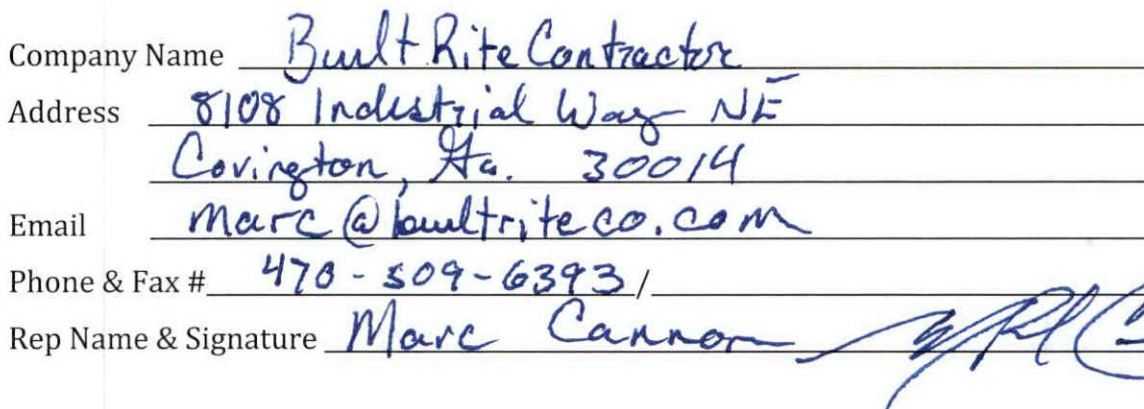 Company Name Built Rite Contractor
Address 8108 Industrial Way NE
Covington, Ga. 30014
Email marc@builtriteco.com
Phone & Fax # 470-509-6393/
Rep Name & Signature Marc Cannon